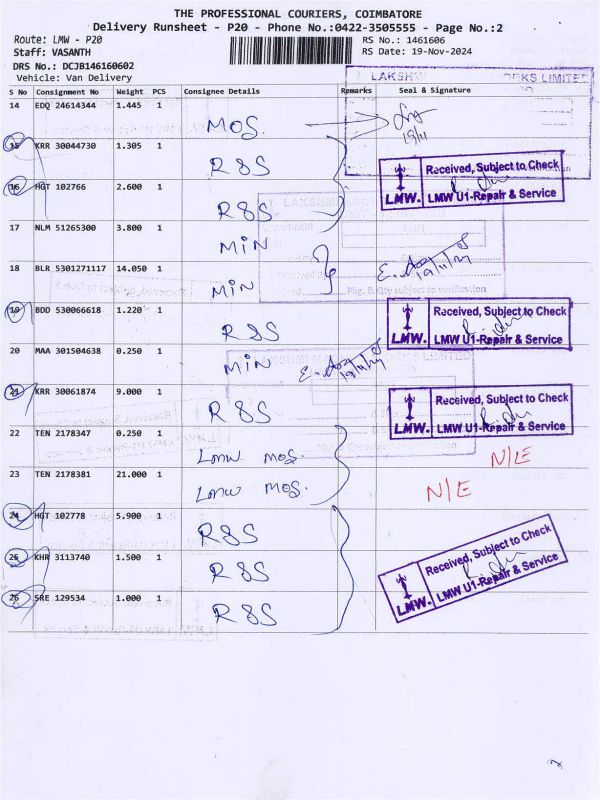 THE PROFESSIONAL COURIERS, COIMBATORE
Delivery Runsheet - P20 - Phone No.:0422-3505555 - Page No.:2
Route: LMW - P20 RS No.: 1461606
Staff: VASANTH RS Date: 19-Nov-2024
DRS No.: DCJB146160602
Vehicle: Van Delivery
LAKSHM RKS LIMITED
S No Consignment No Weight PCS Consignee Details Remarks Seal & Signature
14 EDQ 24614344 1.445 1 MOS.
19/11
15 KRR 30044730 1.305 1 R&S
Received, Subject to Check
LMW. LMW U1-Repair & Service
16 HGT 102766 2.600 1 R&S
17 NLM 51265300 3.800 1 MIN
18 BLR 5301271117 14.050 1 MIN
19/11/24
Pkg. & Qty subject to verification
19 BDD 530066618 1.220 1 R&S
Received, Subject to Check
LMW. LMW U1-Repair & Service
20 MAA 301504638 0.250 1 MIN
19/11/24
21 KRR 30061874 9.000 1 R&S
Received, Subject to Check
LMW. LMW U1-Repair & Service
22 TEN 2178347 0.250 1 LMW MOS. N/E
23 TEN 2178381 21.000 1 LMW MOS. N/E
24 HGT 102778 5.900 1 R&S
25 KHR 3113740 1.500 1 R&S
Received, Subject to Check
LMW. LMW U1-Repair & Service
26 SRE 129534 1.000 1 R&S